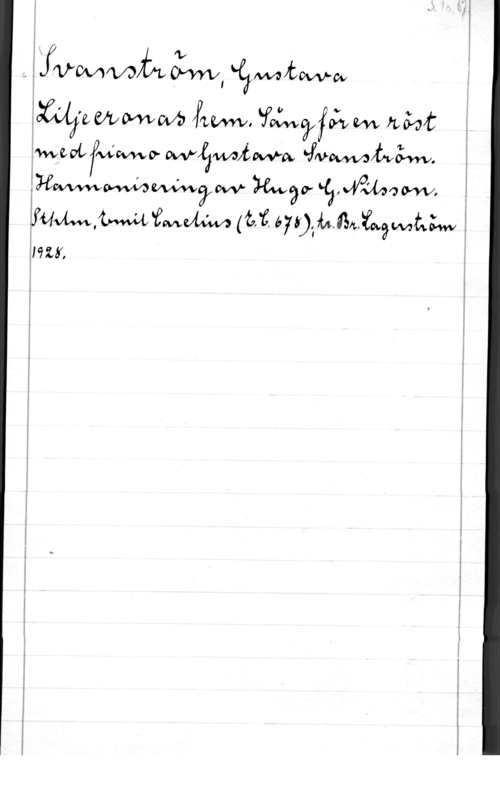 Svanström, Gustava
Liljeeronas hem. Sång för en röst
med piano av Gustava Svanström.
Harmonisering av Hugo G. Nilsson.
Sthlm, Emil Carelius (E. C. 678); tr. Br. Lagerström
1928.